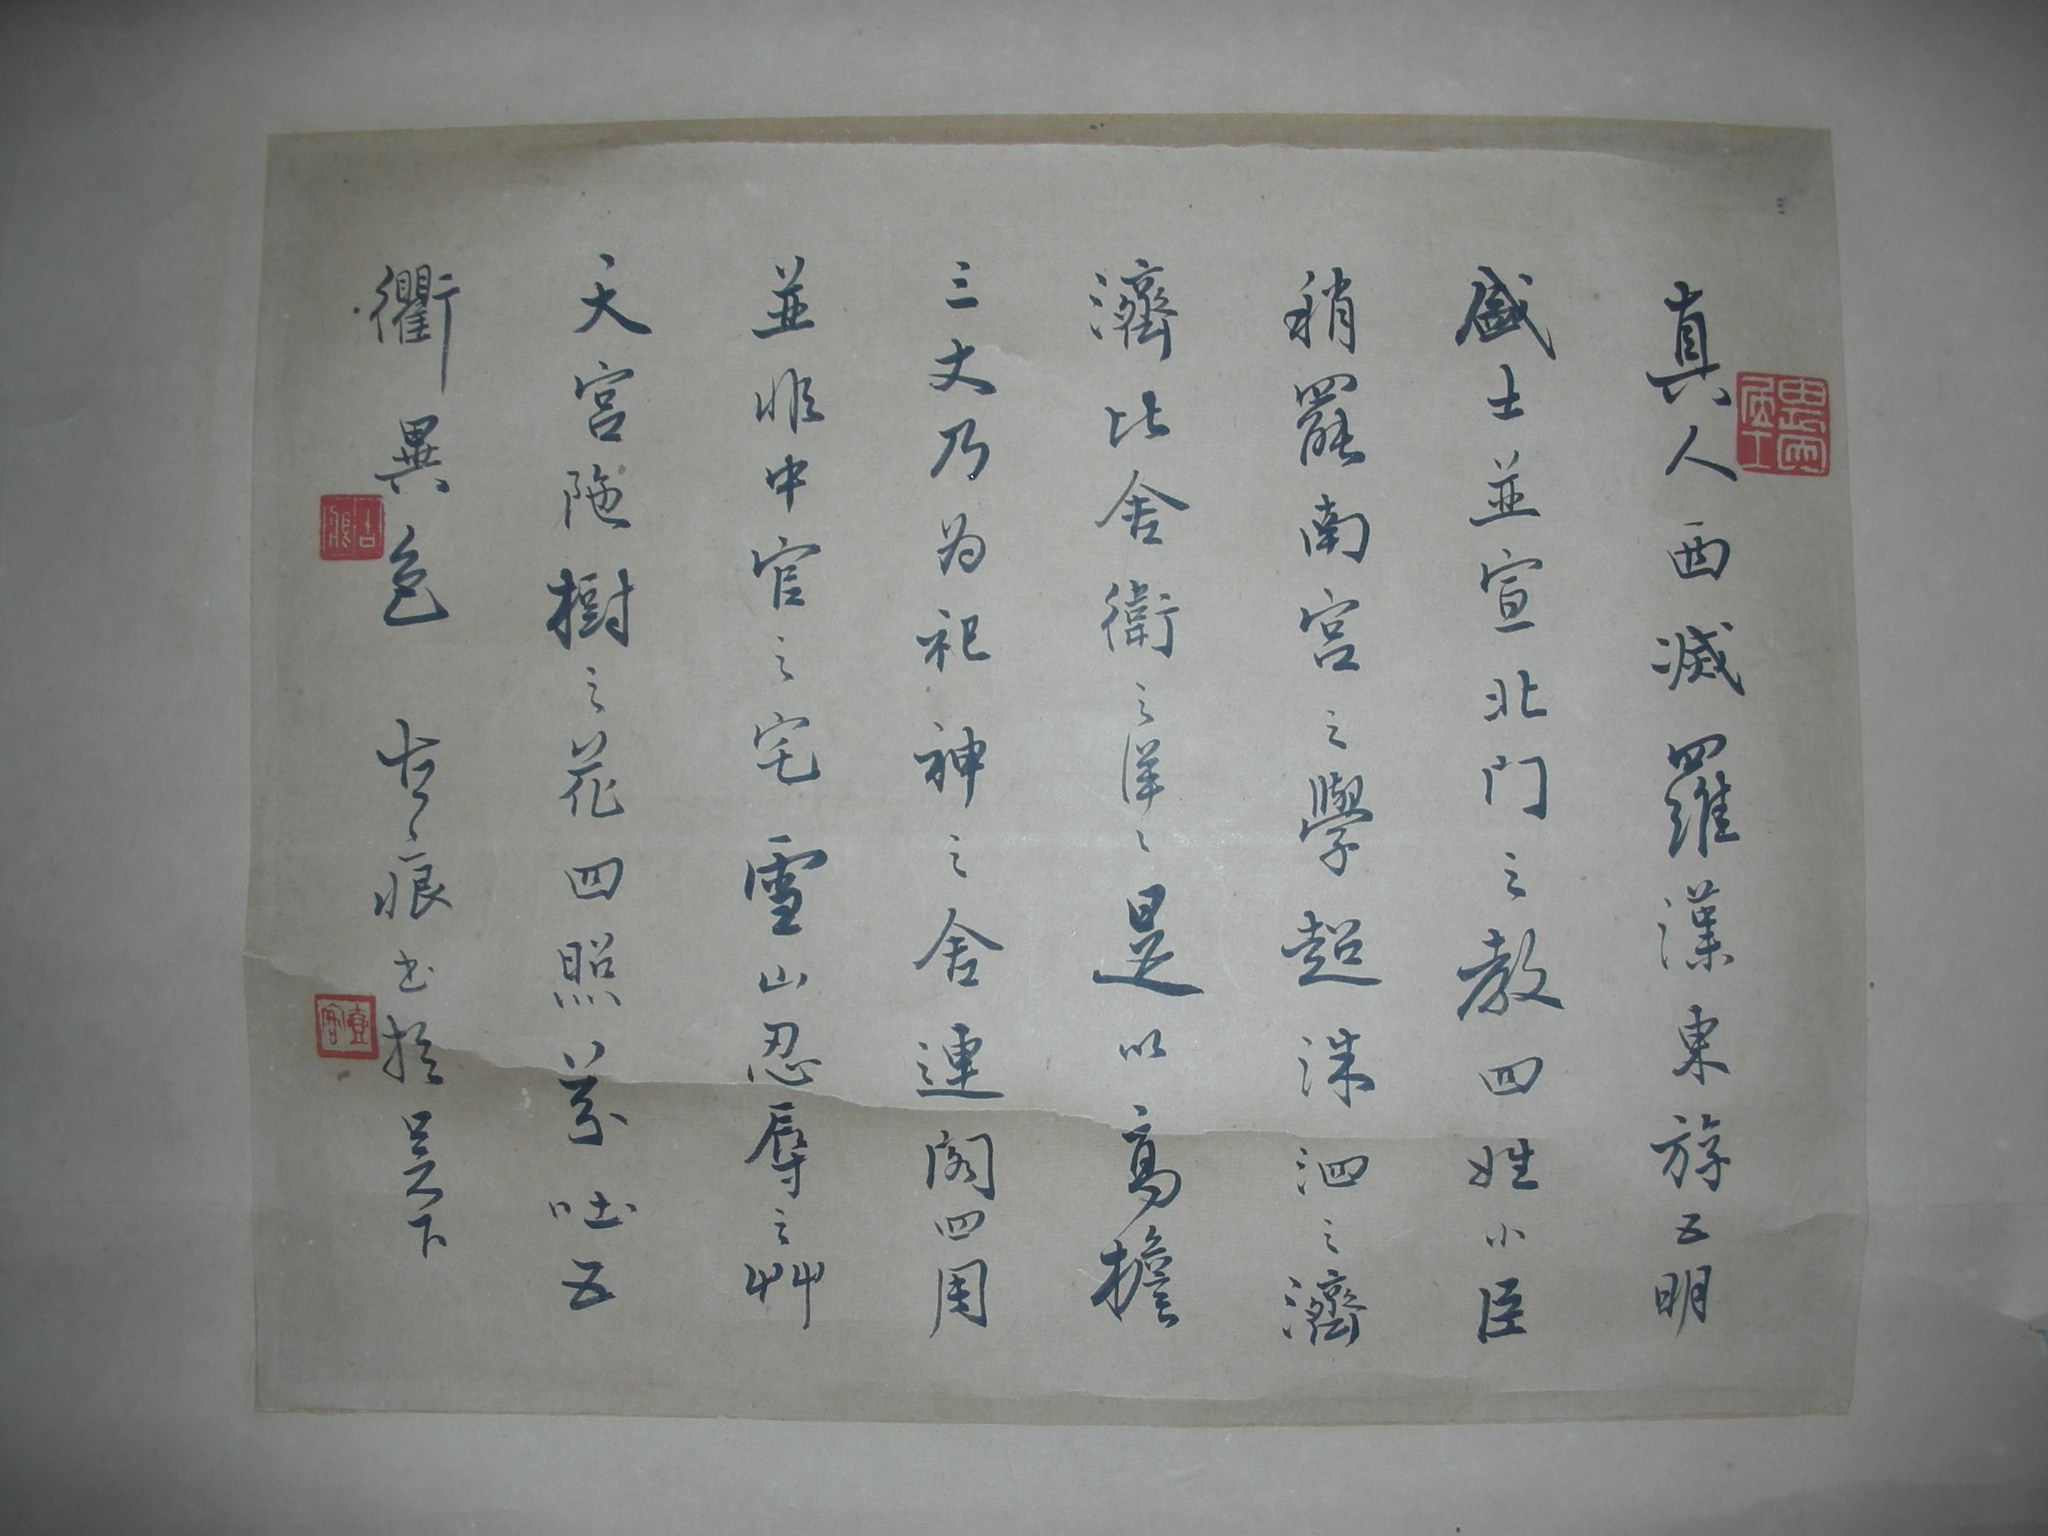 真人西滅羅漢東游五明
盛士並宣北門之教四姓小臣
稍罷南宮之學超洙泗之濟
濟比舍衛之洋〻是以高擔
三丈乃为祀神之舍連閣四周
並非中官之宅雪山忍辱之艸
天宮陁樹之花四照芬吐五
衢異色 古痕书於吴下